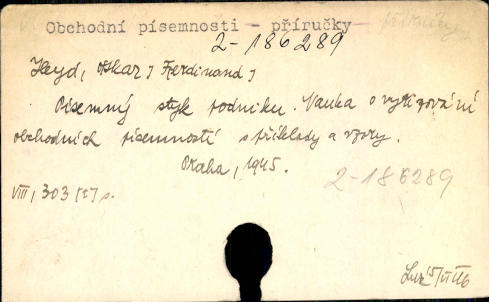 Obchodní písemnosti - příručky
2-186289
Heyd, Oskar [Ferdinand]
Písemný styk podniku. Nauka o vyřizování
obchodních písemností s příklady a vzory.
Praha, 1945.
2-186289
VIII, 303 [I] s.